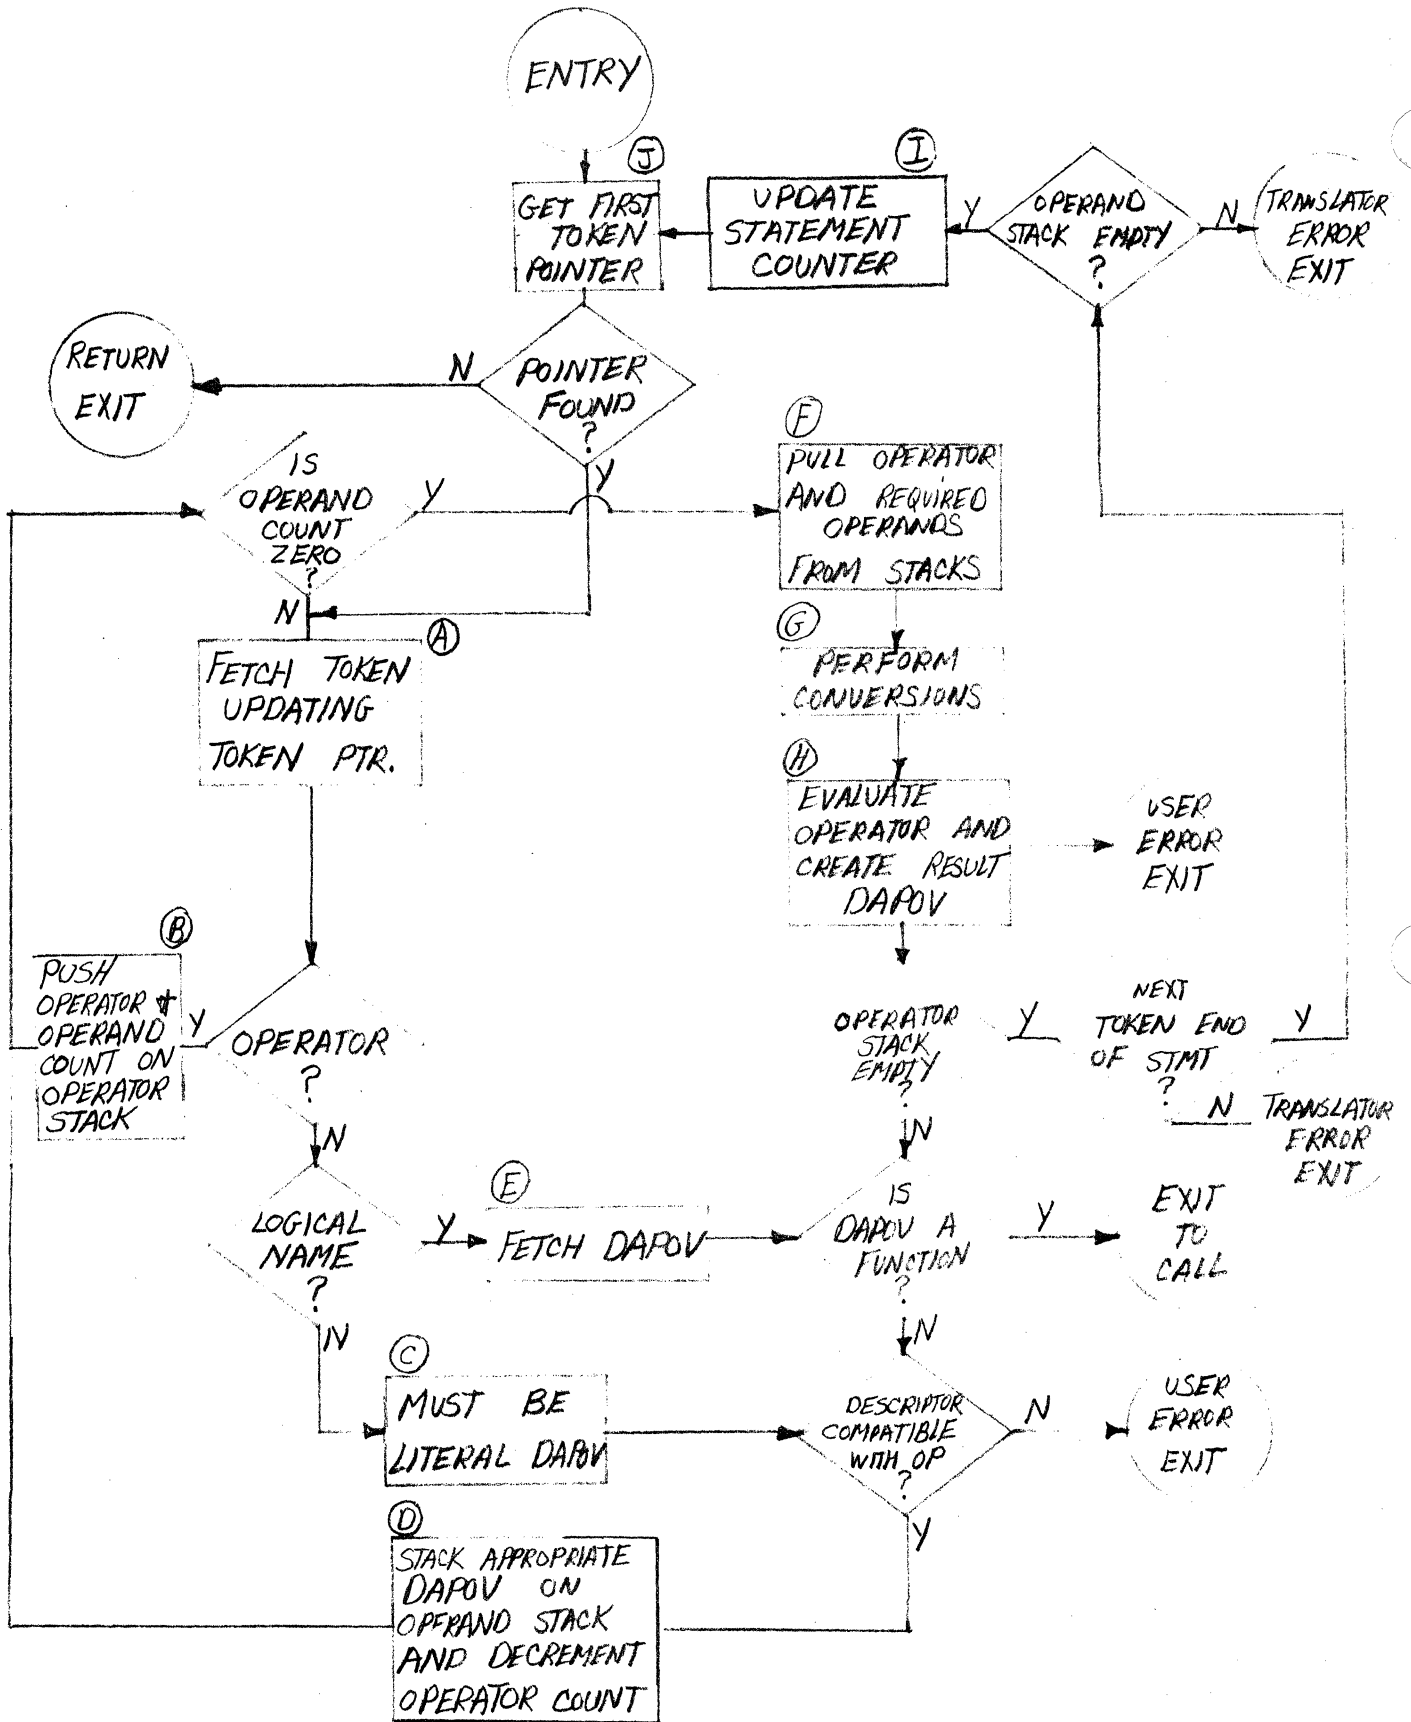 ENTRY
J
GET FIRST
TOKEN
POINTER
I
UPDATE
STATEMENT
COUNTER
Y
OPERAND
STACK EMPTY
?
N
TRANSLATOR
ERROR
EXIT
RETURN
EXIT
N
POINTER
FOUND
?
Y
IS
OPERAND
COUNT
ZERO
?
Y
N
F
PULL OPERATOR
AND REQUIRED
OPERANDS
FROM STACKS
A
FETCH TOKEN
UPDATING
TOKEN PTR.
G
PERFORM
CONVERSIONS
H
EVALUATE
OPERATOR AND
CREATE RESULT
DAPOV
USER
ERROR
EXIT
B
PUSH
OPERATOR +
OPERAND
COUNT ON
OPERATOR
STACK
Y
OPERATOR
?
N
OPERATOR
STACK
EMPTY
?
Y
N
NEXT
TOKEN END
OF STMT
?
Y
N
TRANSLATOR
ERROR
EXIT
LOGICAL
NAME
?
Y
N
E
FETCH DAPOV
IS
DAPOV A
FUNCTION
?
Y
N
EXIT
TO
CALL
C
MUST BE
LITERAL DAPOV
DESCRIPTOR
COMPATIBLE
WITH OP
?
N
Y
USER
ERROR
EXIT
D
STACK APPROPRIATE
DAPOV ON
OPERAND STACK
AND DECREMENT
OPERATOR COUNT